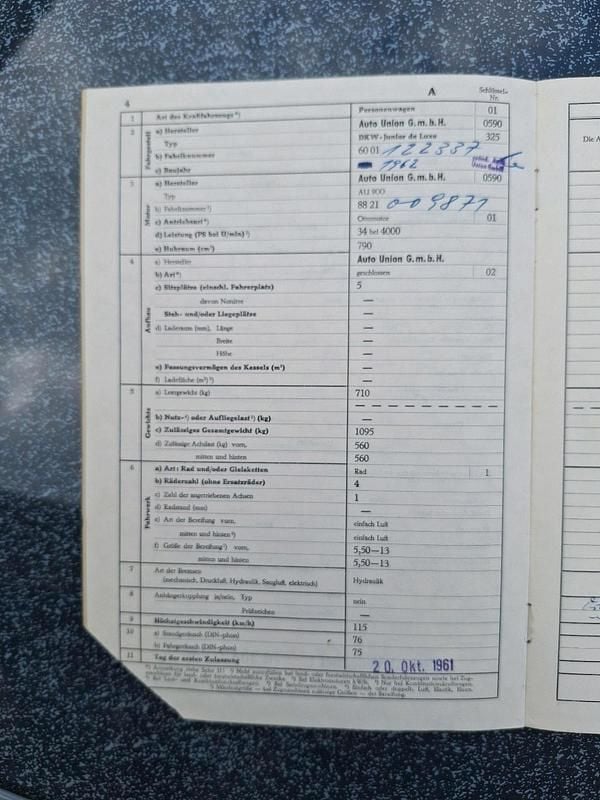 4 A Schlüssel-Nr.
1 Art des Kraftfahrzeugs Personenwagen 01
2 Fahrgestell a) Hersteller Auto Union G.m.b.H. 0590
Typ DKW-Junior de Luxe 325
b) Fabriknummer 60 01 122337
c) Baujahr 1962
3 Motor a) Hersteller Auto Union G.m.b.H. 0590
Typ AU 900
b) Fabriknummer 88 21 009871
c) Antriebsart Ottomotor 01
d) Leistung (PS bei U/min) 34 bei 4000
e) Hubraum (cm³) 790
4 Aufbau a) Hersteller Auto Union G.m.b.H.
b) Art geschlossen 02
c) Sitzplätze (einschl. Fahrerplatz) 5
davon Notsitze —
Steh- und/oder Liegeplätze —
d) Laderaum (mm), Länge —
Breite —
Höhe —
e) Fassungsvermögen des Kessels (m³) —
f) Ladefläche (m²) —
5 Gewichte a) Leergewicht (kg) 710
b) Nutz- oder Aufliegelast (kg) —
c) Zulässiges Gesamtgewicht (kg) 1095
d) Zulässige Achslast (kg) vorn, 560
mitten und hinten 560
6 Fahrwerk a) Art: Rad und/oder Gleisketten Rad 1
b) Räderzahl (ohne Ersatzräder) 4
c) Zahl der angetriebenen Achsen 1
d) Radstand (mm) —
e) Art der Bereifung vorn, einfach Luft
mitten und hinten einfach Luft
f) Größe der Bereifung vorn, 5,50—13
mitten und hinten 5,50—13
7 Art der Bremsen
(mechanisch, Druckluft, Hydraulik, Saugluft, elektrisch) Hydraulik
8 Anhängerkupplung ja/nein, Typ nein
Prüfzeichen —
9 Höchstgeschwindigkeit (km/h) 115
10 a) Standgeräusch (DIN-phon) 76
b) Fahrgeräusch (DIN-phon) 75
11 Tag der ersten Zulassung 20. Okt. 1961
Die A